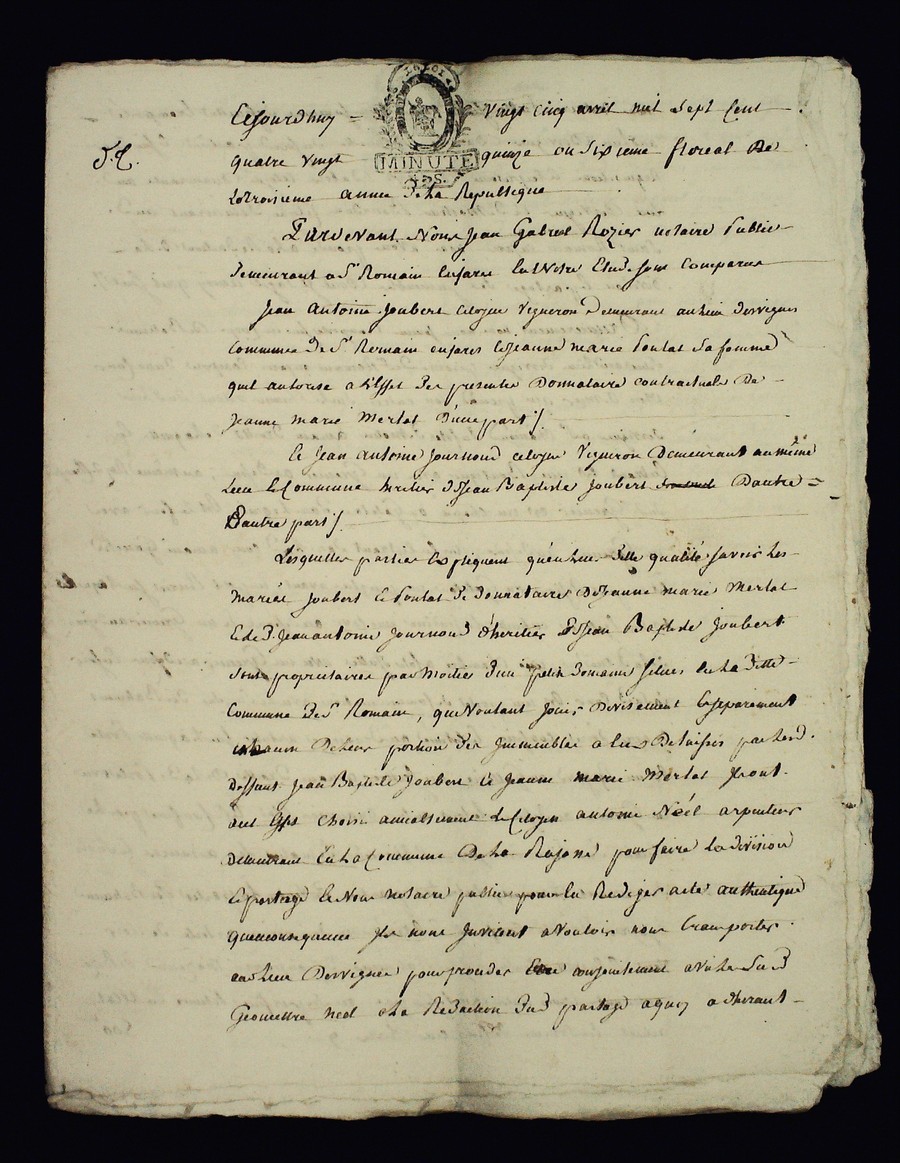 Cejourdhuy = vingt cinq avril mil sept cent
quatre vingt quinze ou sixieme floreal De
Latroisieme année De la Republique
MINUTE
Pardevant Nous Jean Gabriel Rozier notaire Public
Demeurant a St Romain enjarez En Notre Etude sont Comparus
Jean Antoine Joubert Citoyen Vigneron Demeurant au lieu Desvignes
Commune De St Romain enjares et Jeanne marie Poulat Sa femme
quil autorise a L'effet Des presentes Donnataire contractuelle De
Jeanne marie Merlat D'une part /.
Et Jean Antoine Journoud citoyen Vigneron Demeurant au même
Lieu et Commune heritier De Jean Baptiste Joubert Dautre =
Dautre part /.
Lesquelles parties Expliquent qu'en leur Ditte qualité savoir Les
Mariés Joubert et Poulat De Donnataires De Jeanne marie Merlat
Et led. Jean antoine Journoud d'heritier De Jean Baptiste Joubert
sont proprietaires par Moitié D'un petit Domaine situé en La Ditte
Commune De St Romain, que Voulant Jouir Divisement et separement
chacun De leur portion Des Immeubles a eux Delaissés par led.
Deffunt Jean Baptiste Joubert et Jeanne marie Merlat
choisi amiablement Le Citoyen antoine Néel arpenteur
Demeurant En La Commune De La pour faire La Division
et partage et Nous Notaire public pour En Rediger acte authentique
Qu'en consequence Ils nous Invitent a Vouloir nous transporter
au lieu Desvignes pour proceder conjointement avec Le Sud
Geometre neel a La Redaction Dud partage a quoy adherant